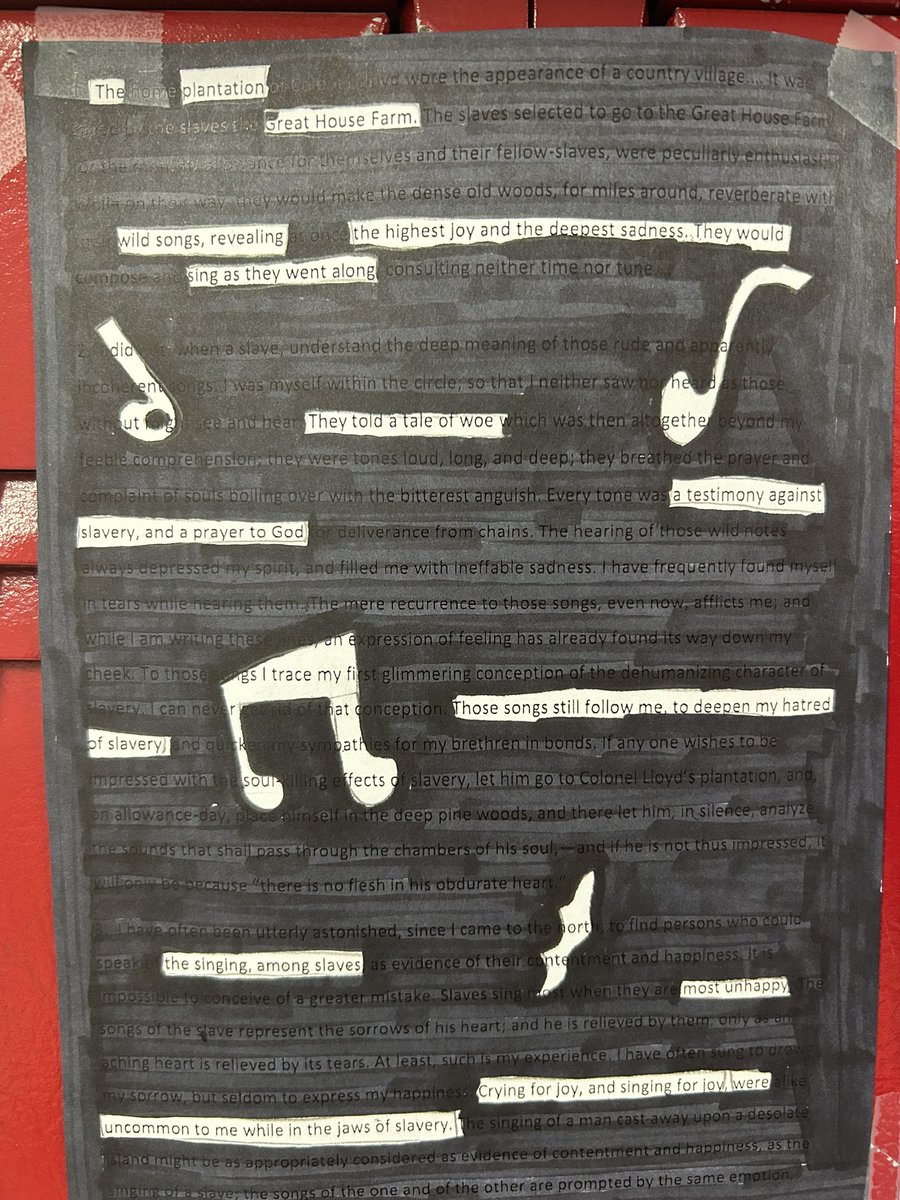 The home plantation of Colonel Lloyd wore the appearance of a country village.... It was
by the slaves the Great House Farm. The slaves selected to go to the Great House Farm,
of the monthly allowance for themselves and their fellow-slaves, were peculiarly enthusiastic.
While on their way, they would make the dense old woods, for miles around, reverberate with
wild songs, revealing at once the highest joy and the deepest sadness. They would
compose and sing as they went along, consulting neither time nor tune.
2. I did not, when a slave, understand the deep meaning of those rude and apparently
incoherent songs. I was myself within the circle; so that I neither saw nor heard as those
without might see and hear. They told a tale of woe which was then altogether beyond my
feeble comprehension; they were tones loud, long, and deep; they breathed the prayer and
complaint of souls boiling over with the bitterest anguish. Every tone was a testimony against
slavery, and a prayer to God for deliverance from chains. The hearing of those wild notes
always depressed my spirit, and filled me with ineffable sadness. I have frequently found myself
in tears while hearing them. The mere recurrence to those songs, even now, afflicts me; and
while I am writing these lines, an expression of feeling has already found its way down my
cheek. To those songs I trace my first glimmering conception of the dehumanizing character of
slavery. I can never get rid of that conception. Those songs still follow me, to deepen my hatred
of slavery, and quicken my sympathies for my brethren in bonds. If any one wishes to be
impressed with the soul-killing effects of slavery, let him go to Colonel Lloyd's plantation, and,
on allowance-day, place himself in the deep pine woods, and there let him, in silence, analyze
the sounds that shall pass through the chambers of his soul,—and if he is not thus impressed, it
will only be because "there is no flesh in his obdurate heart."
3. I have often been utterly astonished, since I came to the north, to find persons who could
speak of the singing, among slaves, as evidence of their contentment and happiness. It is
impossible to conceive of a greater mistake. Slaves sing most when they are most unhappy. The
songs of the slave represent the sorrows of his heart; and he is relieved by them, only as an
aching heart is relieved by its tears. At least, such is my experience. I have often sung to drown
my sorrow, but seldom to express my happiness. Crying for joy, and singing for joy, were alike
uncommon to me while in the jaws of slavery. The singing of a man cast away upon a desolate
island might be as appropriately considered as evidence of contentment and happiness, as the
singing of a slave; the songs of the one and of the other are prompted by the same emotion.